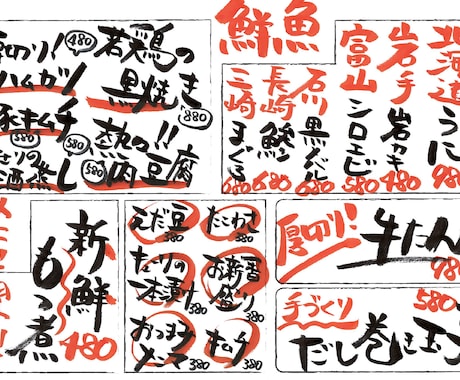 厚切り!
ハムカツ
480
若鶏の
黒焼き
880
豚キムチ
580
熱々!!
肉豆腐
580
酒蒸し
鮮魚
北海道 うに 980
岩手 岩カキ 480
富山 シロエビ 580
石川 黒バイ 680
長崎 鯵 680
三崎 まぐろ 680
新鮮
もつ煮
480
えだ豆
380
たこわさ
380
キューリの
一本漬け
380
お新香
盛り
380
おつまみ
メンマ
380
キムチ
380
厚切り!
牛たん
980
手づくり
だし巻き玉子
580